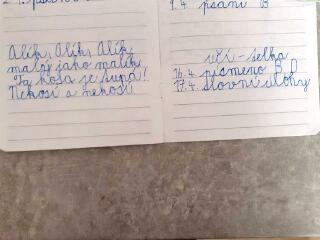 Alík, Alík, Alík,
malý jako malík.
Ta kosa je supá!
Nekosí a nekosí
9.4. psaní B
učí-telka
16.4. písmeno B, D
17.4. slovní úlohy